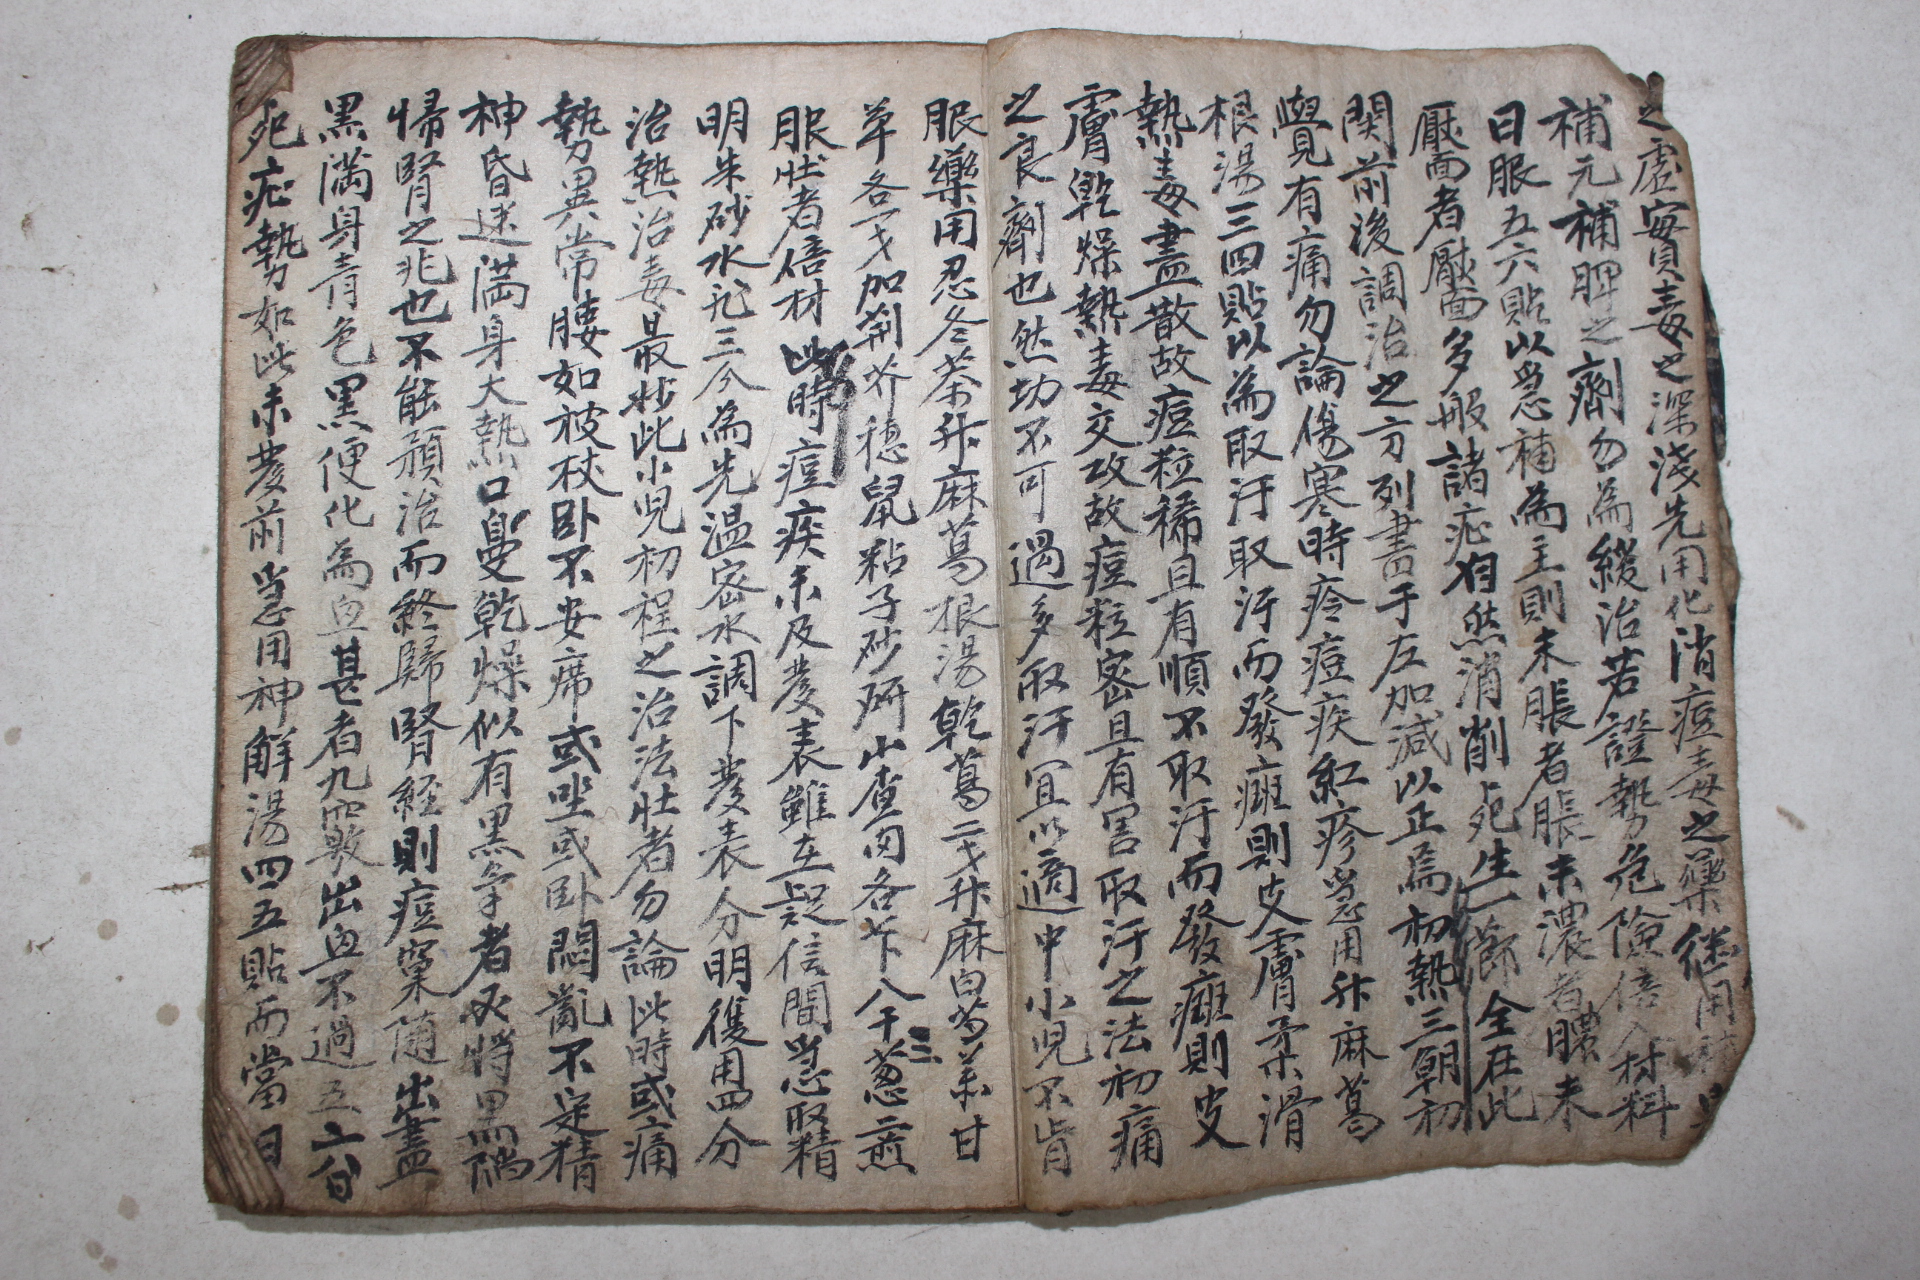 之虛實毒之深淺先用化消痘毒之藥继用補
補元補脾之劑勿為緩治若證勢危險倍入材料
日服五六貼以急補為主則未脹者脹未濃者膿未
壓面者壓面多般諸症自然消削死生一節全在此
関前後調治之方列書于左加減以正焉初熱三朝初
覺有痛勿論傷寒時疹痘疾紅疹急用升麻葛
根湯三四貼以為取汗取汗而發癍則皮膚柔滑
熱毒盡散故痘粒稀且有順不取汗而發癍則皮
膚乾燥熱毒交攻故痘粒密且有害取汗之法初痛
之良劑也然切不可過多取汗宜以適中小児不肯
服藥用忍冬茶升麻葛根湯乾葛二戈升麻白芍薬甘
草各一戈加荊芥穗鼠粘子砂研山查肉各 下八干葱三煎
服壮者倍材此時痘疾未及發表雖在疑信間急取精
明朱砂水飛三分為先温密水調下發表分明後用四分
治熱治毒最妙此小児初程之治法壮者勿論此時或痛
勢異常腰如被杖卧不安席或坐或卧悶亂不定精
神昏迷満身大熱口鼻乾燥似有黑 者必将黑陥
帰腎之兆也不能預治而終歸腎經則痘窠随出盡
黑満身青色黑便化為血甚者九竅出血不過五六日
死症勢如此未發前急用神解湯四五貼而當日